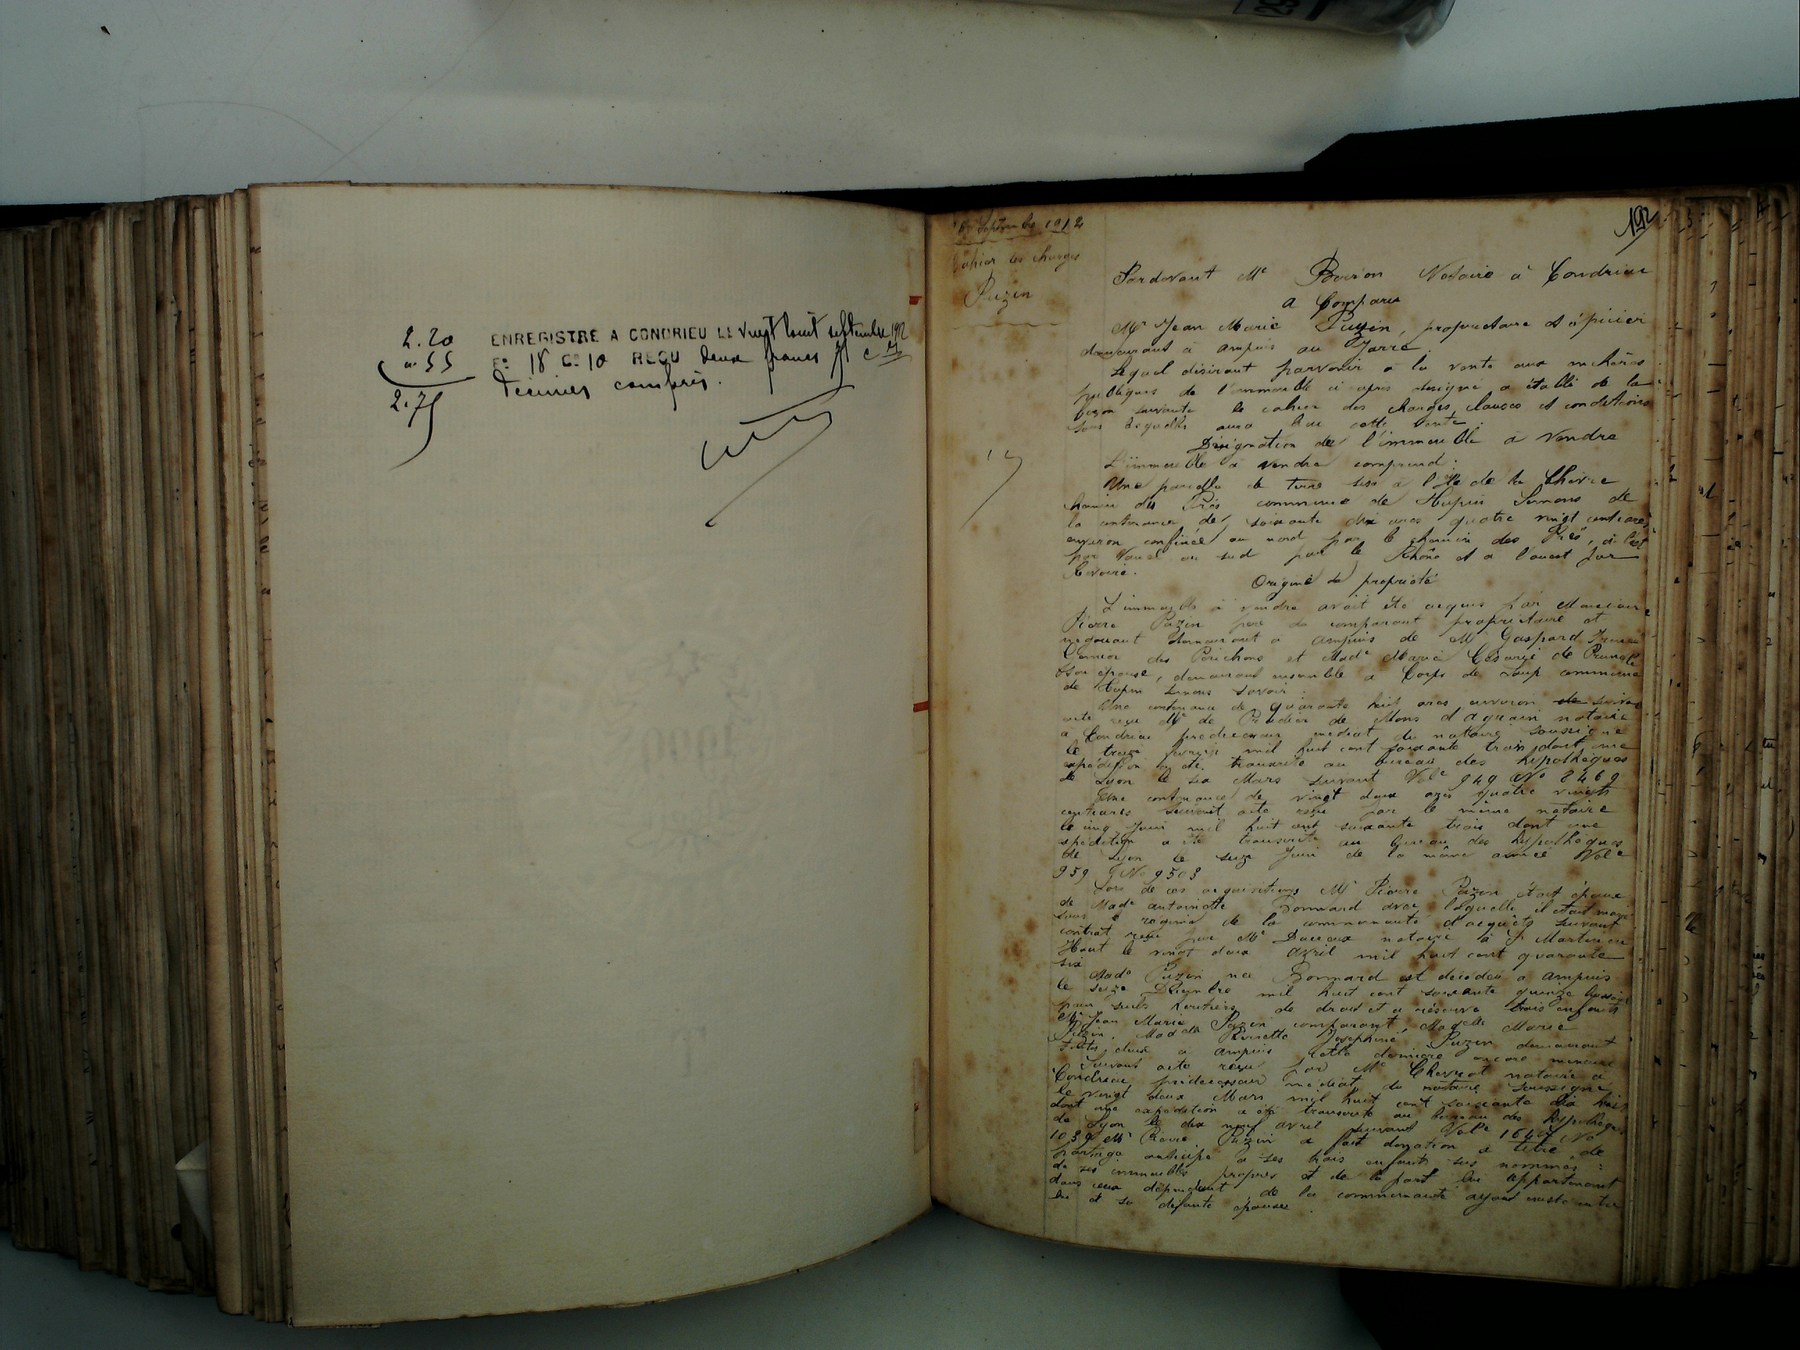 2.20
55
2.75
ENREGISTRE A CONDRIEU LE vingt huit septembre 1912
Fo 18 Co 10 REÇU deux francs 75 c
décimes compris.
192
Septembre 1912
Cahier des charges
Puzin
Pardevant Me Notaire à Condrieu
a Comparu
Mr Jean Marie Puzin, propriétaire et épicier
demeurant à Ampuis au
Lequel désirant parvenir à la vente aux enchères
publiques de l'immeuble ci après désigné a établi de la
façon suivante le cahier des charges, clauses et conditions
sous lesquelles aura lieu cette vente.
Désignation de l'immeuble à vendre
L'immeuble à vendre comprend :
Une parcelle de terre sise à l'Ile de la Chèvre
chemin des Prés commune de Tupin Semons de
la contenance de soixante dix ares quatre vingt centiares
environ confinée au nord par le chemin des Prés, à l'est
par au sud par le Rhône et à l'ouest par
Origine de propriété
L'immeuble à vendre avait été acquis par Monsieur
Pierre Puzin père du comparant propriétaire et
négociant demeurant à Ampuis de Mr Gaspard
des et Made Marie de
son épouse, demeurant ensemble à Corps de Loup commune
de Tupin Semons savoir :
Une contenance de quarante huit ares environ de suivant
acte reçu Me de de Mons d'aguain notaire
à Condrieu prédécesseur médiat du notaire soussigné
le treize mil huit cent soixante trois dont une
expédition a été transcrite au bureau des hypothèques
de Lyon le six Mars suivant Vole 949 No 8469
Une contenance de vingt deux ares quatre vingts
centiares suivant acte reçu par le même notaire
le cinq Juin mil huit cent soixante trois dont une
expédition a été transcrite au bureau des hypothèques
de Lyon le seize Juin de la même année Vole
959 No 9503
Lors de ces acquisitions Mr Pierre Puzin était époux
de Made Antoinette Bonnard avec laquelle il était marié
sous le régime de la communauté d'acquêts suivant
contrat reçu par Me notaire à St Martin en
Haut le vingt deux avril mil huit cent quarante
six
Made Puzin née Bonnard est décédée à Ampuis
le seize Décembre mil huit cent soixante quinze laissant
pour seuls héritiers de droit et à réserve trois enfants
Mr Jean Marie Puzin comparant, Madelle Marie
Puzin, Madelle Pierrette Joséphine Puzin demeurant
tous deux à Ampuis cette dernière encore mineure
Suivant acte reçu par Me notaire à
Condrieu, prédécesseur médiat du notaire soussigné
le vingt deux Mars mil huit cent soixante dix huit
dont une expédition a été transcrite au bureau des hypothèques
de Lyon le dix neuf avril suivant Vole No
1039 Mr Pierre Puzin a fait donation à titre de
partage anticipé à ses trois enfants sus nommés :
de ses immeubles propres et de la part lui appartenant
dans ceux dépendant de la communauté ayant existé entre
lui et sa défunte épouse.